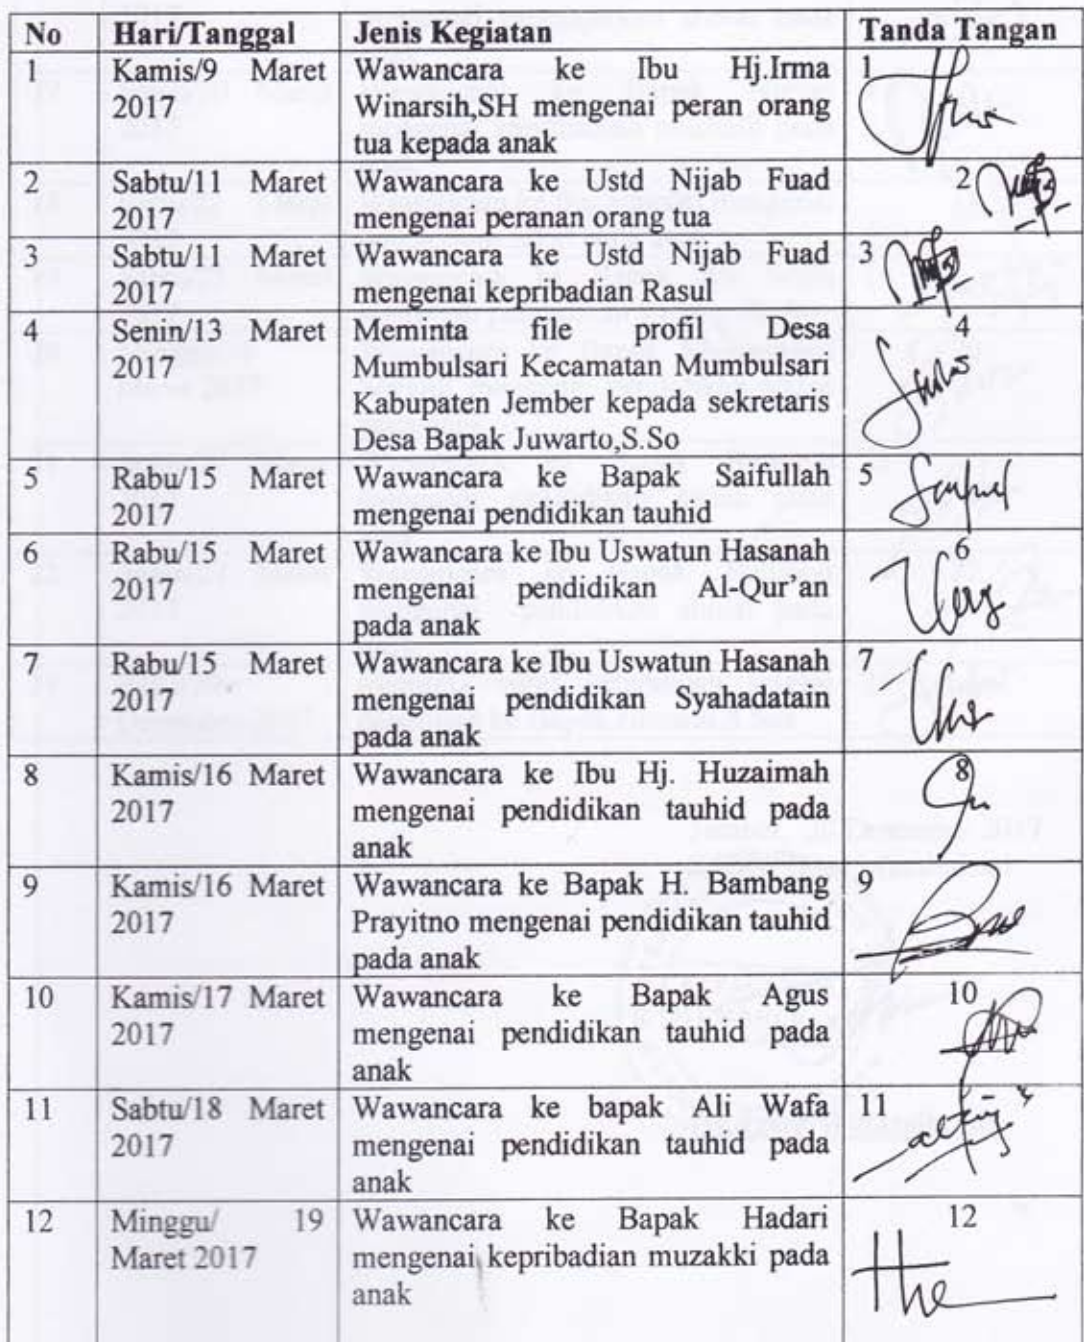 No Hari/Tanggal Jenis Kegiatan Tanda Tangan
1 Kamis/9 Maret Wawancara ke Ibu Hj.Irma 1
2017 Winarsih,SH mengenai peran orang
tua kepada anak
2 Sabtu/11 Maret Wawancara ke Ustd Nijab Fuad 2
2017 mengenai peranan orang tua
3 Sabtu/11 Maret Wawancara ke Ustd Nijab Fuad 3
2017 mengenai kepribadian Rasul
4 Senin/13 Maret Meminta file profil Desa 4
2017 Mumbulsari Kecamatan Mumbulsari
Kabupaten Jember kepada sekretaris
Desa Bapak Juwarto,S.So
5 Rabu/15 Maret Wawancara ke Bapak Saifullah 5
2017 mengenai pendidikan tauhid
6 Rabu/15 Maret Wawancara ke Ibu Uswatun Hasanah 6
2017 mengenai pendidikan Al-Qur’an
pada anak
7 Rabu/15 Maret Wawancara ke Ibu Uswatun Hasanah 7
2017 mengenai pendidikan Syahadatain
pada anak
8 Kamis/16 Maret Wawancara ke Ibu Hj. Huzaimah 8
2017 mengenai pendidikan tauhid pada
anak
9 Kamis/16 Maret Wawancara ke Bapak H. Bambang 9
2017 Prayitno mengenai pendidikan tauhid
pada anak
10 Kamis/17 Maret Wawancara ke Bapak Agus 10
2017 mengenai pendidikan tauhid pada
anak
11 Sabtu/18 Maret Wawancara ke bapak Ali Wafa 11
2017 mengenai pendidikan tauhid pada
anak
12 Minggu/ 19 Wawancara ke Bapak Hadari 12
Maret 2017 mengenai kepribadian muzakki pada
anak